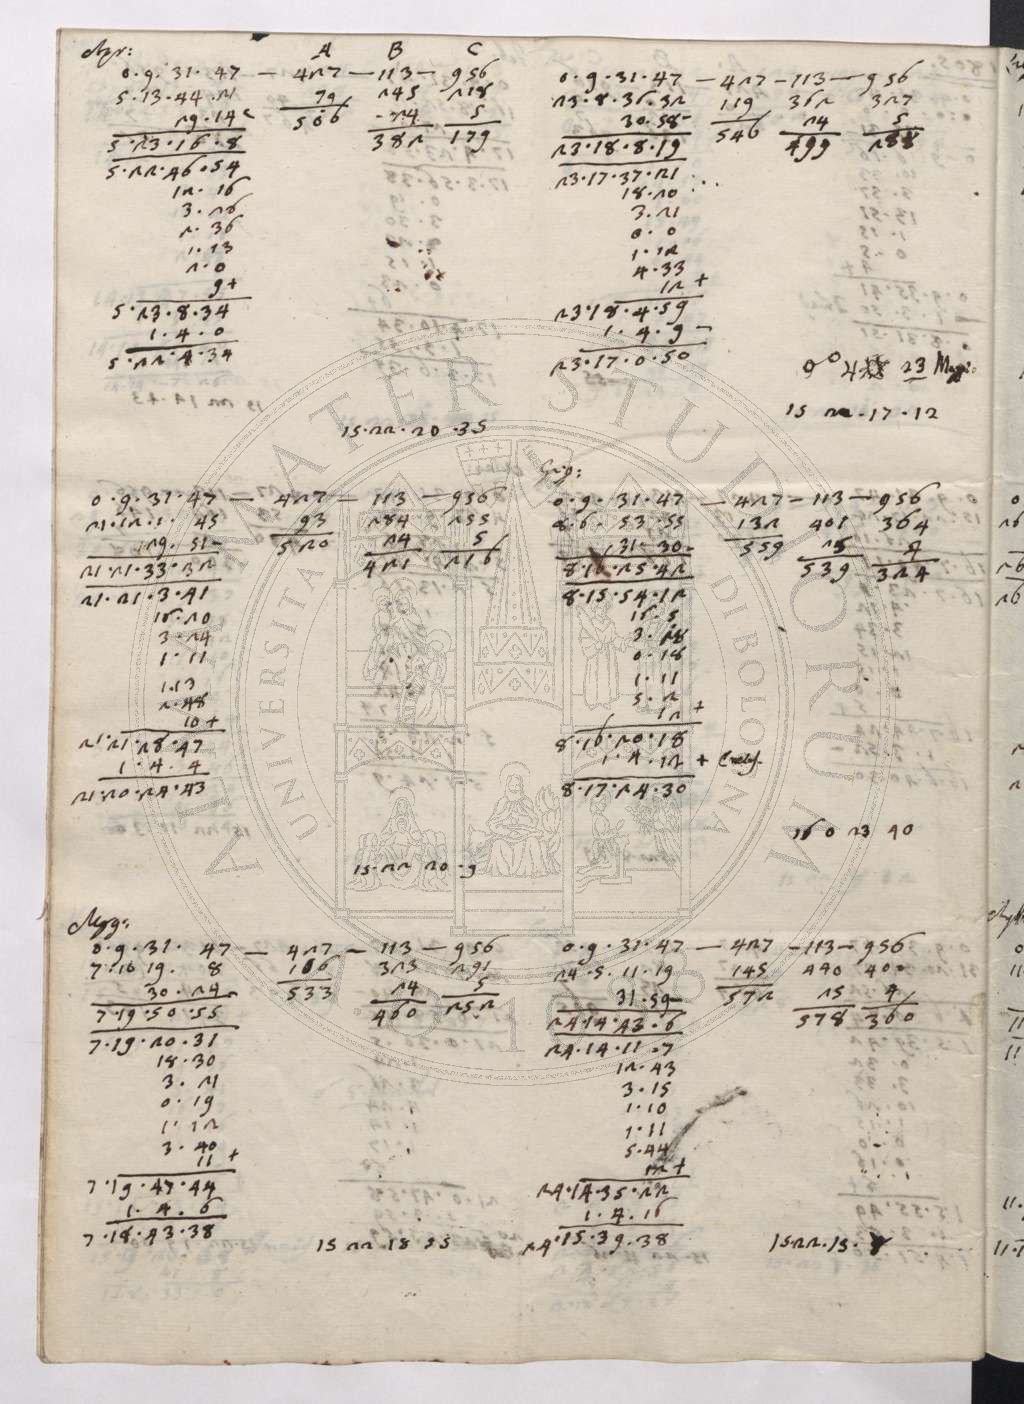 A B C
0.9.31.47 — 427 — 113 — 956
5.13.44.21 79 245 218
29.14- 506 24 5
5.23.16.8 382 179
5.22.46.54
12.16
3.26
2.36
1.13
2.0
9+
5.23.8.34
1.4.0
5.22.4.34
15.22.20.35
0.9.31.47 — 427 — 113 — 956
23.8.36.32 119 362 327
30.58- 546 24 5
23.18.8.19 499 288
23.17.37.21
18.20
3.21
0.0
1.12
4.33
12+
23.18.4.59
1.4.9-
23.17.0.50
23
15 22.17.12
0.9.31.47 — 427 — 113 — 956
21.12.1.45 93 284 255
29.51- 520 24 5
21.21.33.32 421 216
21.21.3.41
16.20
3.24
1.11
1.13
2.48
10+
21.21.28.47
1.4.4
21.20.24.43
15.22 20.9
0.9.31.47 — 427 — 113 — 956
8.6.53.55 132 401 364
31.30- 559 25 4
8.16.25.42 539 324
8.15.54.12
16.5
3.18
0.18
1.11
5.2
12+
8.16.20.18
1.4.12+
8.17.24.30
16 0 23 40
0.9.31.47 — 427 — 113 — 956
7.10 19.8 106 323 291
30.24- 533 24 5
7.19.50.55 460 252
7.19.20.31
18.30
3.21
0.19
1.12
3.40
11+
7.19.47.44
1.4.6
7.18.43.38
15 22 18 55
0.9.31.47 — 427 — 113 — 956
24.5.11.19 145 440 400
31.59- 572 25 4
24.14.43.6 578 360
24.14.11.7
12.43
3.15
1.10
1.11
5.44
12+
24.14.35.22
1.4.16
24.15.39.38
ALMA MATER STUDIORUM
UNIVERSITAS DI BOLOGNA
A.D. 1088